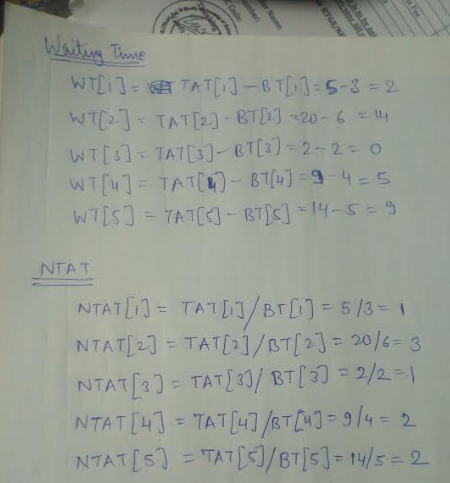 Code:
Waiting Time
WT[1] = TAT[1] - BT[1] = 5 - 3 = 2
WT[2] = TAT[2] - BT[2] = 20 - 6 = 14
WT[3] = TAT[3] - BT[3] = 2 - 2 = 0
WT[4] = TAT[4] - BT[4] = 9 - 4 = 5
WT[5] = TAT[5] - BT[5] = 14 - 5 = 9
NTAT
NTAT[1] = TAT[1] / BT[1] = 5/3 = 1
NTAT[2] = TAT[2] / BT[2] = 20/6 = 3
NTAT[3] = TAT[3] / BT[3] = 2/2 = 1
NTAT[4] = TAT[4] / BT[4] = 9/4 = 2
NTAT[5] = TAT[5] / BT[5] = 14/5 = 2